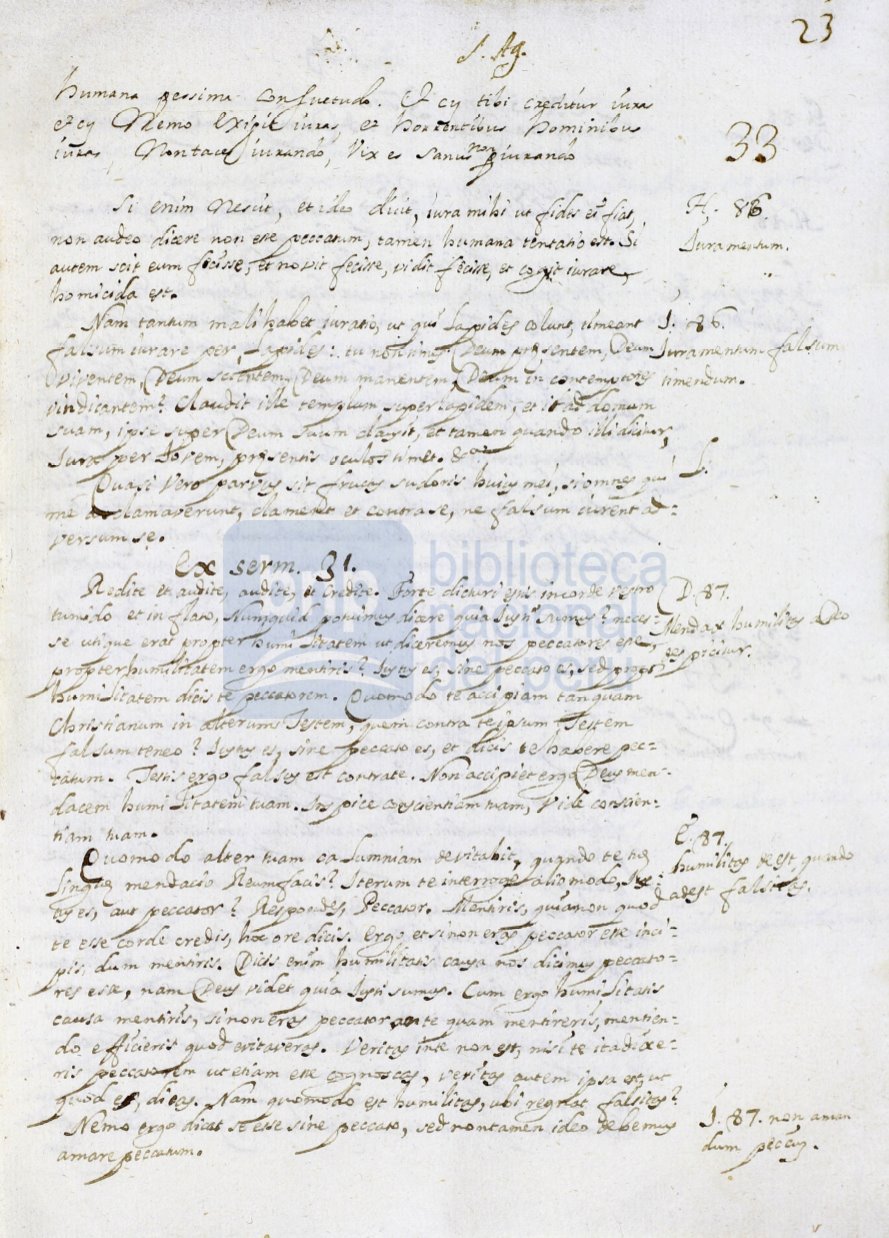 23
S. Ag.
humana pessima consuetudo. Et cũ tibi creditur iuras
et cũ Nemo exigit iuras, et horrentibus hominibus
iuras, Non taces iurando, Vix es sanus non peiurando
33
Si enim Nescit, et ideo dicit, iura mihi ut fides ei fiat,
H. 86.
non audeo dicere non esse peccatum, tamen humana tentatio est. Si
Iuramentum.
autem scit eum fecisse, et novit fecisse, vidit fecisse, et cogit iurare,
homicida est.
Nam tantum mali habet iuratio, ut qui Lapides colunt, timeant
I. 86.
falsum iurare per Lapides: tu non times Deum presentem, Deum
Iuramentum falsum
viventem, Deum scientem, Deum manentem, Deum in contemptores
timendum.
vindicantem? Claudit ille templum super lapidem, et it ad domum
suam, ipse super Deum suum clausit, et tamen quando illi dicitur,
Iura per Iovem, presentis oculos timet. &c
Quasi vero parvus sit fructus sudoris huius mei, si omnes qui
me acclamaverunt, clament et contra se, ne falsum iurent ad-
versum se.
Ex serm. 31.
Redite et audite, audite, et credite. Forte dicturi estis in corde vestro
D. 87.
tumido et inflato, Numquid potuimus dicere quia Iusti sumus? neces-
Mendax humilitas a Deo
se utique erat propter humilitatem ut diceremus nos peccatores esse,
despicitur.
propter humilitatem ergo mentiris? Iustus es, sine peccato es, sed propter
humilitatem dicis te peccatorem. Quomodo te accipiam tanquam
Christianum in alterum Testem, quem contra te ipsum Testem
falsum teneo? Iustus es, sine peccato es, et dicis te habere pec-
catum. Testis ergo falsus est contra te. Non accipiet ergo Deus men-
dacem humilitatem tuam. Inspice conscientiam tuam, Vide conscien-
tiam tuam.
Quomodo alter tuam calumniam devitabit, quando te tuę
E. 87.
linguę mendacio Reum facis? Iterum te interrogo alio modo, Ius-
humilitas deest, quando
tus es, aut peccator? Respondes, Peccator. Mentiris, quia non quod
adest falsitas.
te esse corde credis, hoc ore dicis. Ergo et si non eras peccator esse inci-
pis, dum mentiris. Dicis enim humilitatis causa nos dicimus peccato-
res esse, nam Deus videt quia Iusti sumus. Cum ergo humilitatis
causa mentiris, si non eras peccator ante quam mentireris, mentien-
do efficieris quod evitaveras. Veritas in te non est, nisi te ita dixe-
ris peccatorem ut etiam esse cognoscas, veritas autem ipsa est, ut
quod es, dicas. Nam quomodo est humilitas, ubi regnat falsitas?
Nemo ergo dicat se esse sine peccato, sed non tamen ideo debemus
I. 87. non aman
amare peccatum.
dum peccatũ.
biblioteca
nacional
del perú